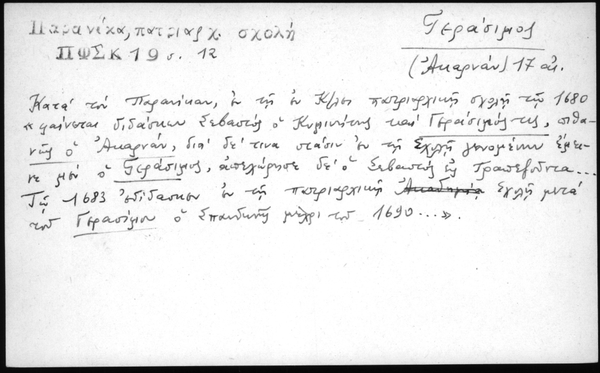 Παρανίκα, πατριαρχ. σχολή
ΠΦΣΚ 19 σ. 12
Γεράσιμος
(Ἀκαρνάν) 17 αἰ.
Κατά τόν Παρανίκαν, ἐν τῇ ἐν Κ/λει πατριαρχικῇ σχολῇ τῷ 1680
"φαίνεται διδάσκων Σεβαστός ὁ Κυμινήτης καί Γεράσιμός τις, πιθα-
νῶς ὁ Ἀκαρνάν, διά δέ τινα στάσιν ἐν τῇ Σχολῇ γενομένην ἔμει-
νε μέν ὁ Γεράσιμος, ἀπεχώρησε δέ ὁ Σεβαστός εἰς Τραπεζοῦντα...
Τῷ 1683 ἐδίδασκεν ἐν τῇ πατριαρχικῇ Ἀκαδημίᾳ Σχολῇ μετά
τοῦ Γερασίμου ὁ Σπανδωνῆς μέχρι τοῦ 1690...».